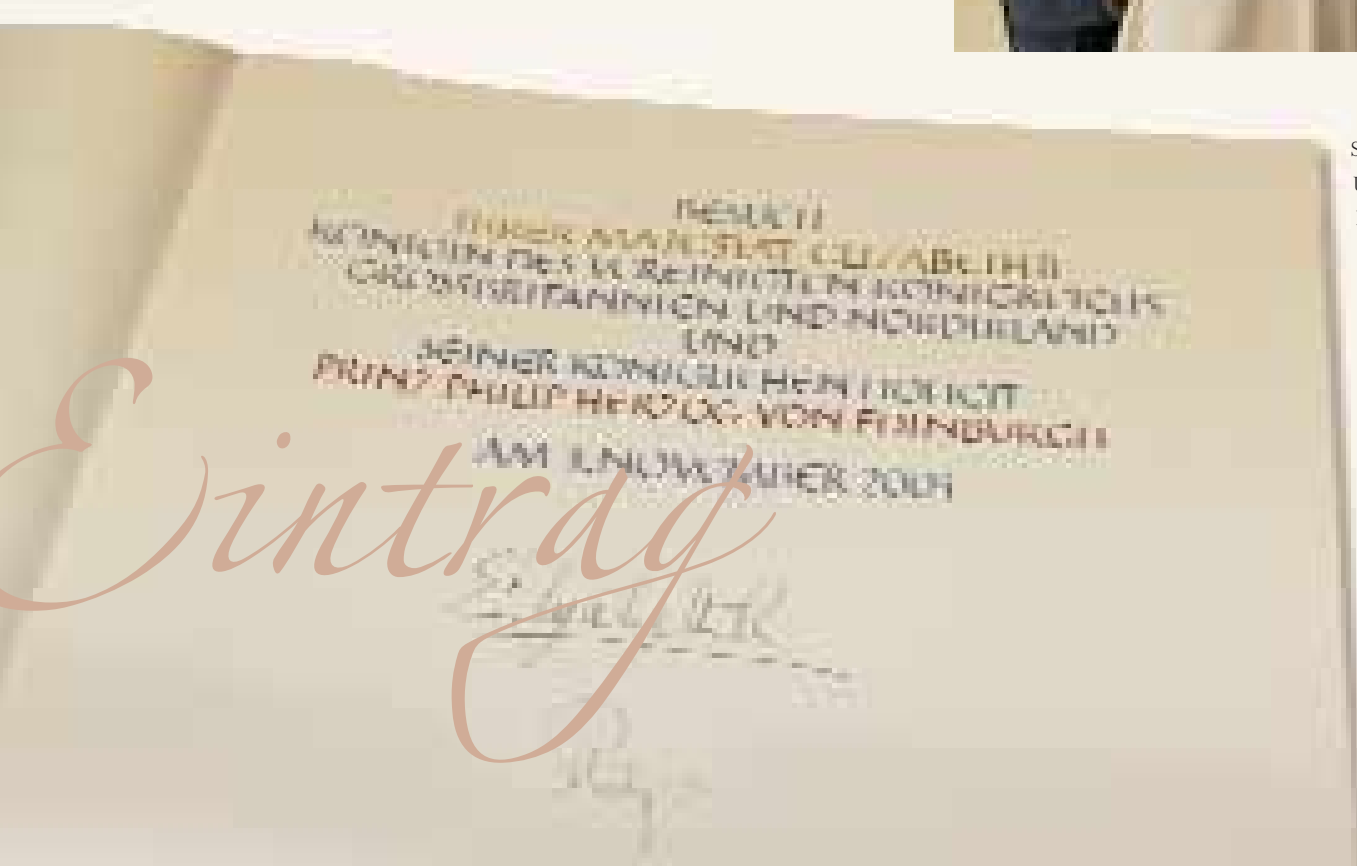 BESUCH
IHRER MAJESTÄT ELIZABETH II
KÖNIGIN DES VEREINIGTEN KÖNIGREICHS
GROSSBRITANNIEN UND NORDIRLAND
UND
SEINER KÖNIGLICHEN HOHEIT
PRINZ PHILIP HERZOG VON EDINBURGH
AM NOVEMBER 2004
Eintrag